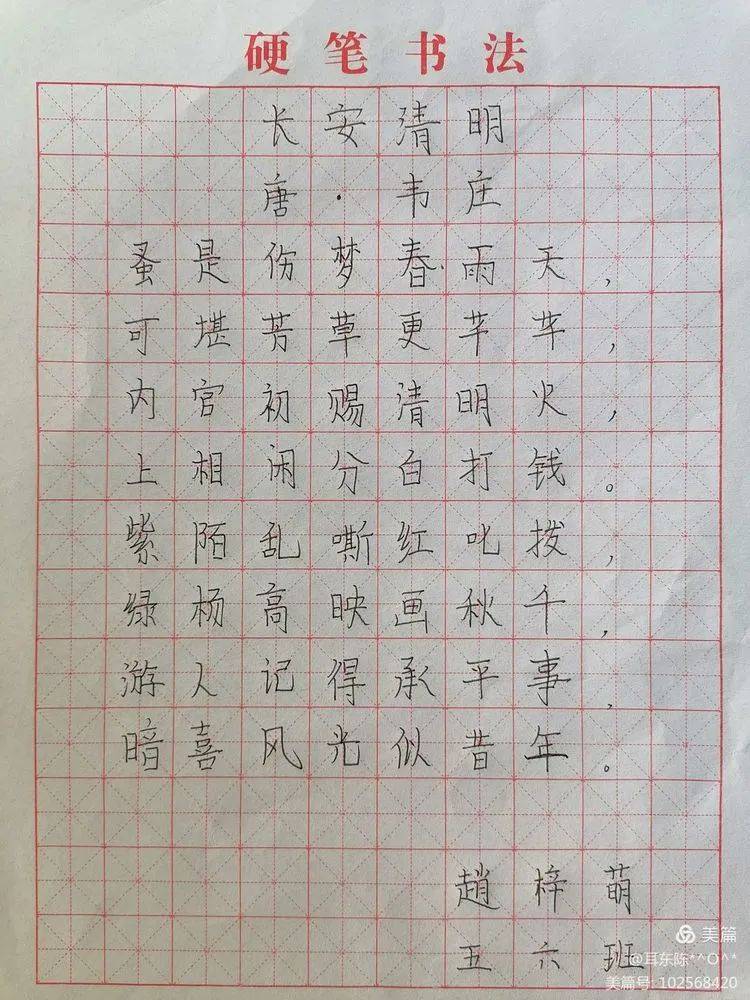 硬笔书法
长安清明
唐·韦庄
蚤是伤梦春雨天，
可堪芳草更芊芊，
内官初赐清明火，
上相闲分白打钱。
紫陌乱嘶红叱拨，
绿杨高映画秋千，
游人记得承平事，
暗喜风光似昔年。
趙梓萌
五六班
美篇
@耳东陈*^O^*
美篇号: 102568420